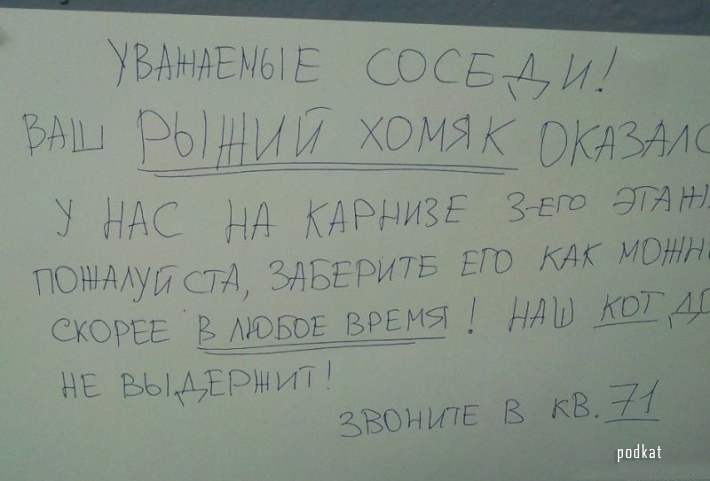 УВАЖАЕМЫЕ СОСЕДИ!
ВАШ РЫЖИЙ ХОМЯК ОКАЗАЛС
У НАС НА КАРНИЗЕ 3-ЕГО ЭТАЖ
ПОЖАЛУЙСТА, ЗАБЕРИТЕ ЕГО КАК МОЖН
СКОРЕЕ В ЛЮБОЕ ВРЕМЯ! НАШ КОТ ДО
НЕ ВЫДЕРЖИТ!
ЗВОНИТЕ В КВ. 71
podkat